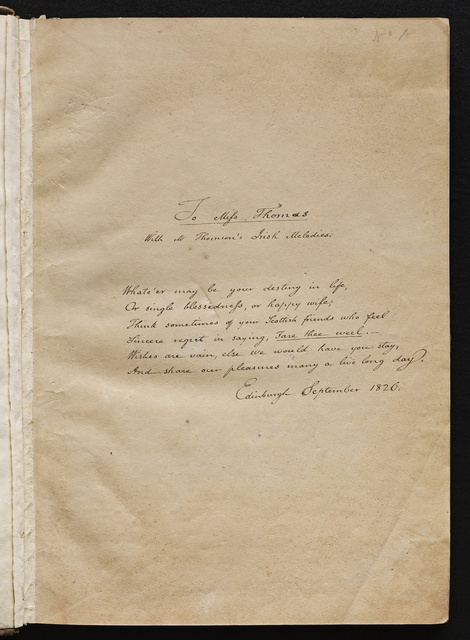 To Miss Thomas
With Mr Thomson's Irish Melodies.
Whate'er may be your destiny in life,
Or single blessedness, or happy wife;
Think sometimes of your Scottish friends who feel
Sincere regret in saying, Fare thee weel.—
Wishes are vain, else we would have you stay,
And share our pleasures many a live long day.
Edinburgh September 1826.